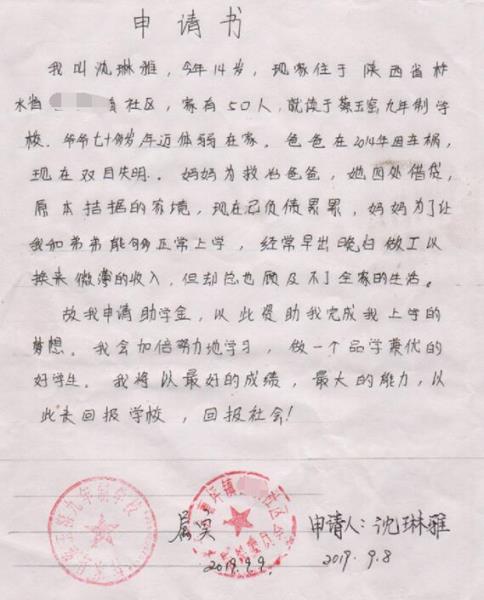 申请书
我叫沈琳雅，今年14岁，现家住于陕西省柞
水省 镇社区，家有50人，就读于蔡玉窑九年制学
校．爷爷七十9岁年迈体弱在家。爸爸在2014年因车祸，
现在双目失明．。妈妈为救治爸爸，她四处借贷，
原本拮据的家境，现在已负债累累，妈妈为了让
我和弟弟能够正常上学，经常早出晚归做工以
换来微薄的收入，但却总也顾及不了全家的生活。
故我申请助学金，以此爱助我完成我上学的
梦想。我会加倍努力地学习，做一个品学兼优的
好学生。我将以最好的成绩，最大的能力，以
此来回报学校，回报社会！
九年制学校
属实
2019.9.9.
申请人：沈琳雅
2019.9.8